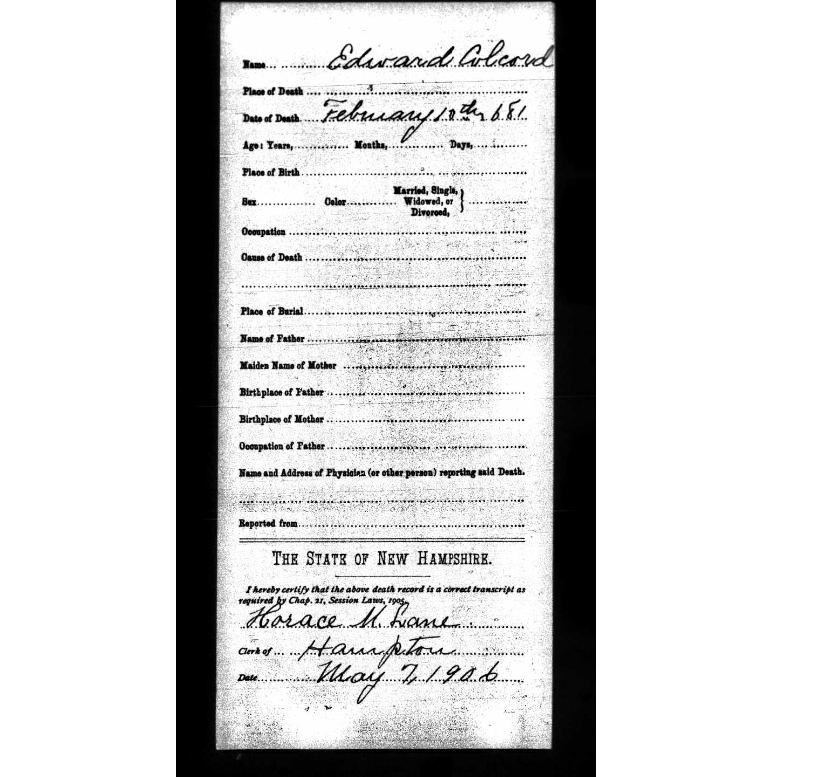 Name Edward Colcord
Place of Death
Date of Death February 10th 1681
Age: Years, Months, Days,
Place of Birth
Sex Color Married, Single, Widowed, or Divorced,
Occupation
Cause of Death
Place of Burial
Name of Father
Maiden Name of Mother
Birthplace of Father
Birthplace of Mother
Occupation of Father
Name and Address of Physician (or other person) reporting said Death.
Reported from
THE STATE OF NEW HAMPSHIRE.
I hereby certify that the above death record is a correct transcript as
required by Chap. 21, Session Laws, 1905.
Horace M. Lane
Clerk of Hampton
Date May 7, 1906